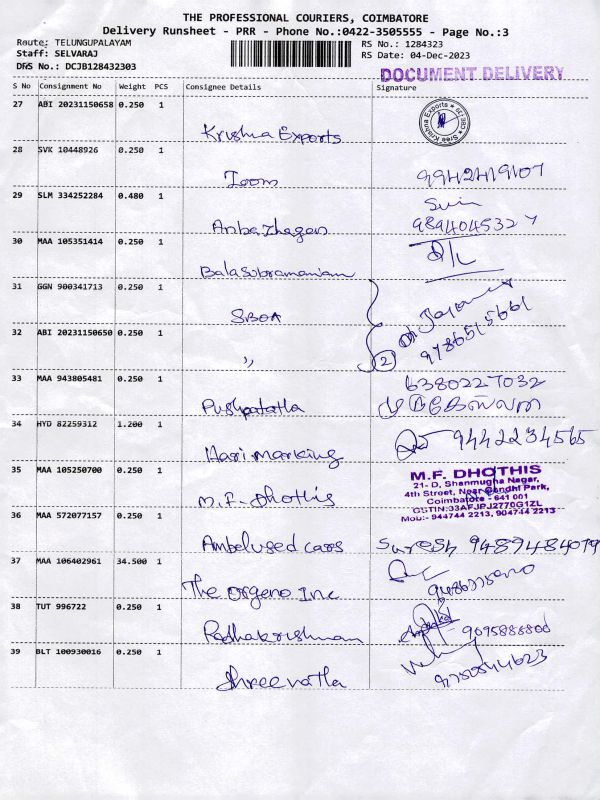 THE PROFESSIONAL COURIERS, COIMBATORE
Delivery Runsheet - PRR - Phone No.:0422-3505555 - Page No.:3
Route: TELUNGUPALAYAM RS No.: 1284323
Staff: SELVARAJ RS Date: 04-Dec-2023
DRS No.: DCJB128432303
DOCUMENT DELIVERY
S No Consignment No Weight PCS Consignee Details Signature
27 ABI 20231150658 0.250 1
Krishna Exports
28 SVK 10448926 0.250 1
Icom 9942419107
29 SLM 334252284 0.480 1
Anbazhagan 9894045327
30 MAA 105351414 0.250 1
Balasubramaniam
31 GGN 900341713 0.250 1
SBOA
32 ABI 20231150650 0.250 1
,, 2 9786515661
33 MAA 943805481 0.250 1 6380227032
Pushpalatha
34 HYD 82259312 1.200 1
Hari marking 9442234565
35 MAA 105250700 0.250 1
M.F. Dhothis
M.F. DHOTHIS
21- D, Shanmugha Nagar,
4th Street, Near Gandhi Park,
Coimbatore - 641 001
GSTIN:33AFJPJ2770G1ZL
Mob:- 944744 2213, 904744 2213
36 MAA 572077157 0.250 1
Ambelused cars Suresh 9489484079
37 MAA 106402961 34.500 1
The Orgeno Inc
38 TUT 996722 0.250 1
Radhakrishnan 9095886806
39 BLT 100930016 0.250 1
Shreevatha 9750544623